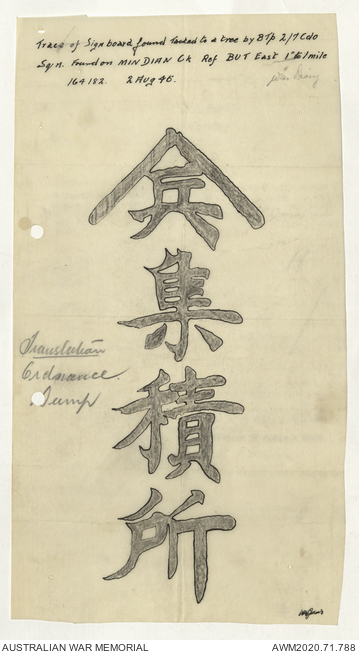 Trace of Signboard found tacked to a tree by B Tp 2/7 Cdo
Sqn. Found on MINDIAN Ck Ref BUT East 1" to 1 mile
164182. 2 Aug 45.
兵
集
積
所
Translation
Ordnance
Dump
AUSTRALIAN WAR MEMORIAL
AWM2020.71.788